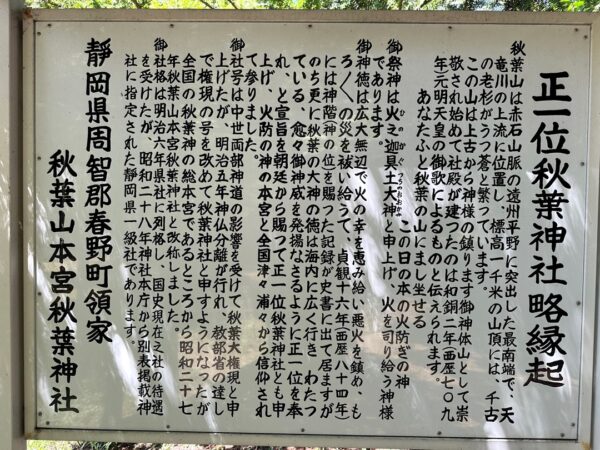 正一位秋葉神社略縁起
秋葉山は赤石山脈の遠州平野に突出した最南端で、天
竜川の上流に位置し、標高一千米の山頂には、千古
の老杉がうつ蒼と繁っています。
この山は上古から神様の鎮ります御神体山として崇
敬され始めて社殿が建ったのは和銅二年西歴七〇九
年元明天皇の御歌によるものと伝えられます。
あなたふと秋葉の山にまし坐せる
この日の本の火防ぎの神
御祭神は火之迦具土大神と申上げ、火を司り給う神様
であります。
御神徳は広大無辺で火の幸を恵み給い悪火を鎮め、も
ろ〳〵の災を祓い給うて、貞観十六年(西歴八十四年)
には神階(神の位を賜った記録が史書に出て居ますが
のち更に秋葉の大神の徳は海内に広く行き、わたつ
ている、愈々御神威を発揚なさるように正一位を奉
れ、と宣旨を朝廷から賜って正一位秋葉神社とも申
上げ、火防の神の本宮と全国津々浦々から信仰され
て参りました。
御社号は中世両部神道の影響を受けて秋葉大権現と申
上げたが、明治五年神仏分離が行れ、教部省の達し
で権現の号を改めて秋葉神社と申すようになったが
全国の秋葉神の総本宮であるところから昭和二十七
年秋葉山本宮秋葉神社と改称しました。
御社格は明治六年県社に列格し、国史現在之社の待遇
を受けたが、昭和二十八年神社本庁から別表掲載神
社に指定された静岡県一級社であります。
靜岡県周智郡春野町領家
秋葉山本宮秋葉神社